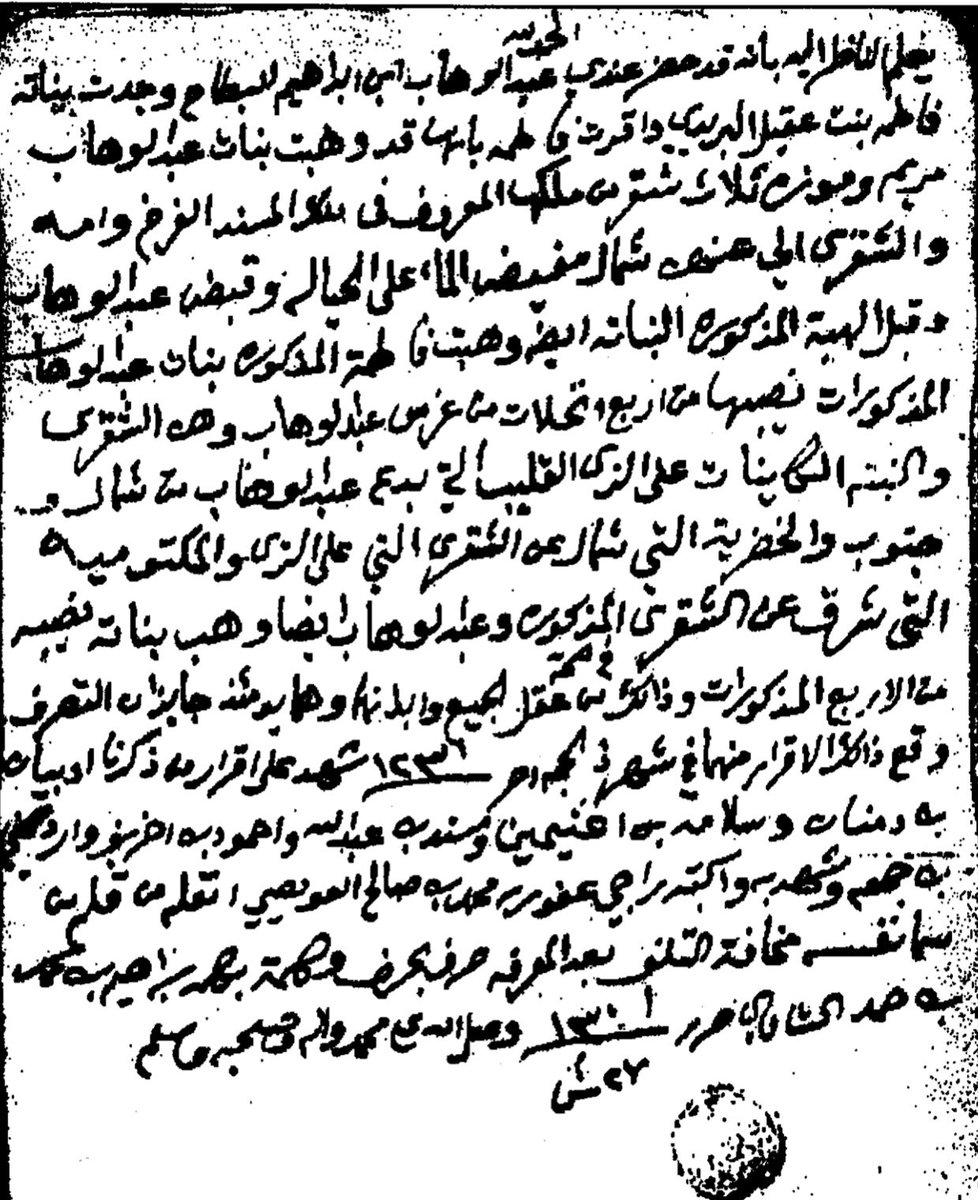 الحمد لله
يعلم الناظر اليه بانه قد حضر عندي عبد الوهاب ابن ابراهيم وجدت بيناته
فاطمه بنت عقيل البريدي واقرت فاطمه بانها قد وهبت بنات عبد لوهاب
مريم وموزه ثلاث شقر من ملكها المعروف في الفرخ وامه
والشقرى الي عنهن شمال مفيض الماء على الحياله وقبض عبد لوهاب
وقبل الهبة المذكوره لبناته ايضا وهبت فاطمة المذكوره بنات عبد لوهاب
المذكورات نصيبها من اربع انخلات من غرس عبد لوهاب وهن الشقرى
والنبته على الزى القليب الي بدع عبد لوهاب من شمال و
جنوب والخضرية التي شمال عن الشقرى التي على الزى والمكتوميه
التي شرق عن الشقرى المذكوره وعبد لوهاب ايضا وهب بناته نصيبه
من الاربع المذكورات وذالك في صحة من عقل الجميع وابدانهما وهما يومئذ جايزان التصرف
وقع ذالك الاقرار منهما في شهر ذي الحجه اخر ١٢٣٦ شهد على اقرار من ذكرنا
وسلامه بن اغنيمين وسند بن عبد الله واحمود بن
بن جمعه وشهد به واكتبه راجي عفو ربه محمد بن صالح العويصي انقله من قلم من
سما نفسه مخافة التلف بعد المعرفه حرف بحرف وكلمة بكلمه ابراهيم بن محمد
بن حمد حرر ١٣٠١ وصلى الله على محمد واله وصحبه وسلم
٢٧ ش